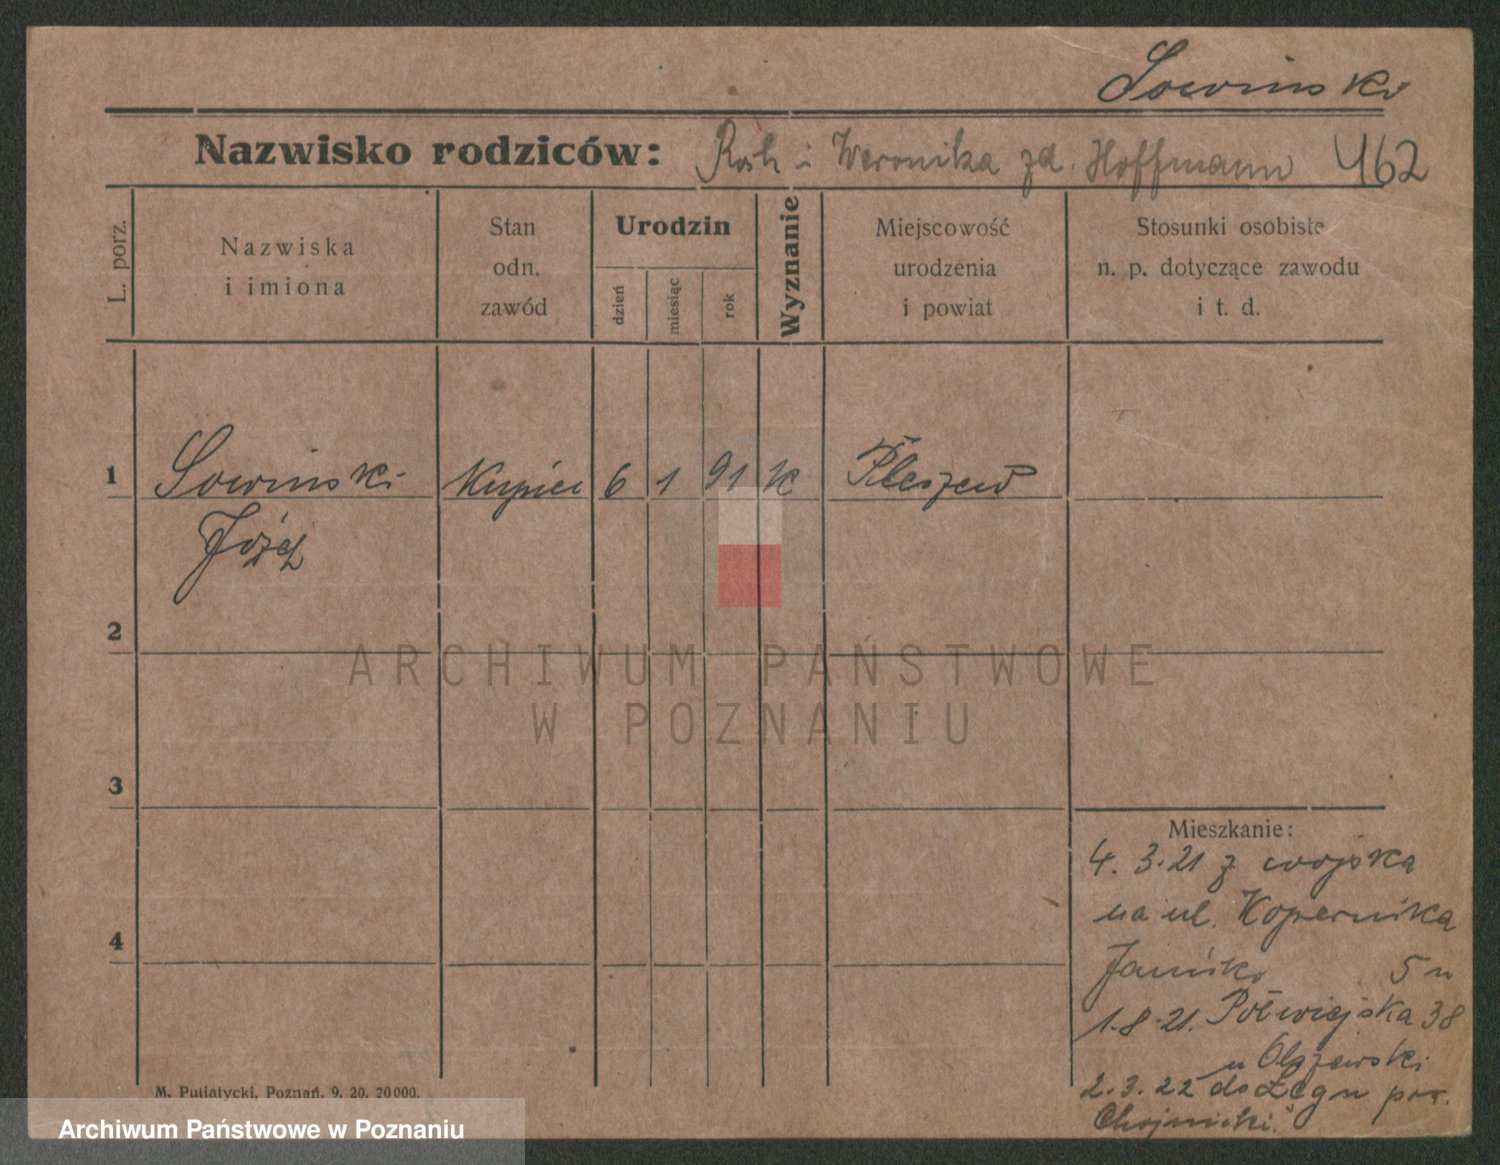 Sowinski
Nazwisko rodziców: Roch i Weronika zd. Hoffmann 462
L. porz.
Nazwiska
i imiona
Stan
odn.
zawód
Urodzin
dzień
miesiąc
rok
Wyznanie
Miejscowość
urodzenia
i powiat
Stosunki osobiste
n. p. dotyczące zawodu
i t. d.
1 Sowinski Kupiec 6 1 91 k Pleszew
Józef
2
3
4
Mieszkanie:
4.3.21 z wojska
na ul. Kopernika
5 u
1.8.21. Półwiejska 38
u Olszewski
2.3.22 do pow.
Chojnicki.
M. Putiatycki, Poznań. 9. 20. 20000.
ARCHIWUM PAŃSTWOWE
W POZNANIU
Archiwum Państwowe w Poznaniu